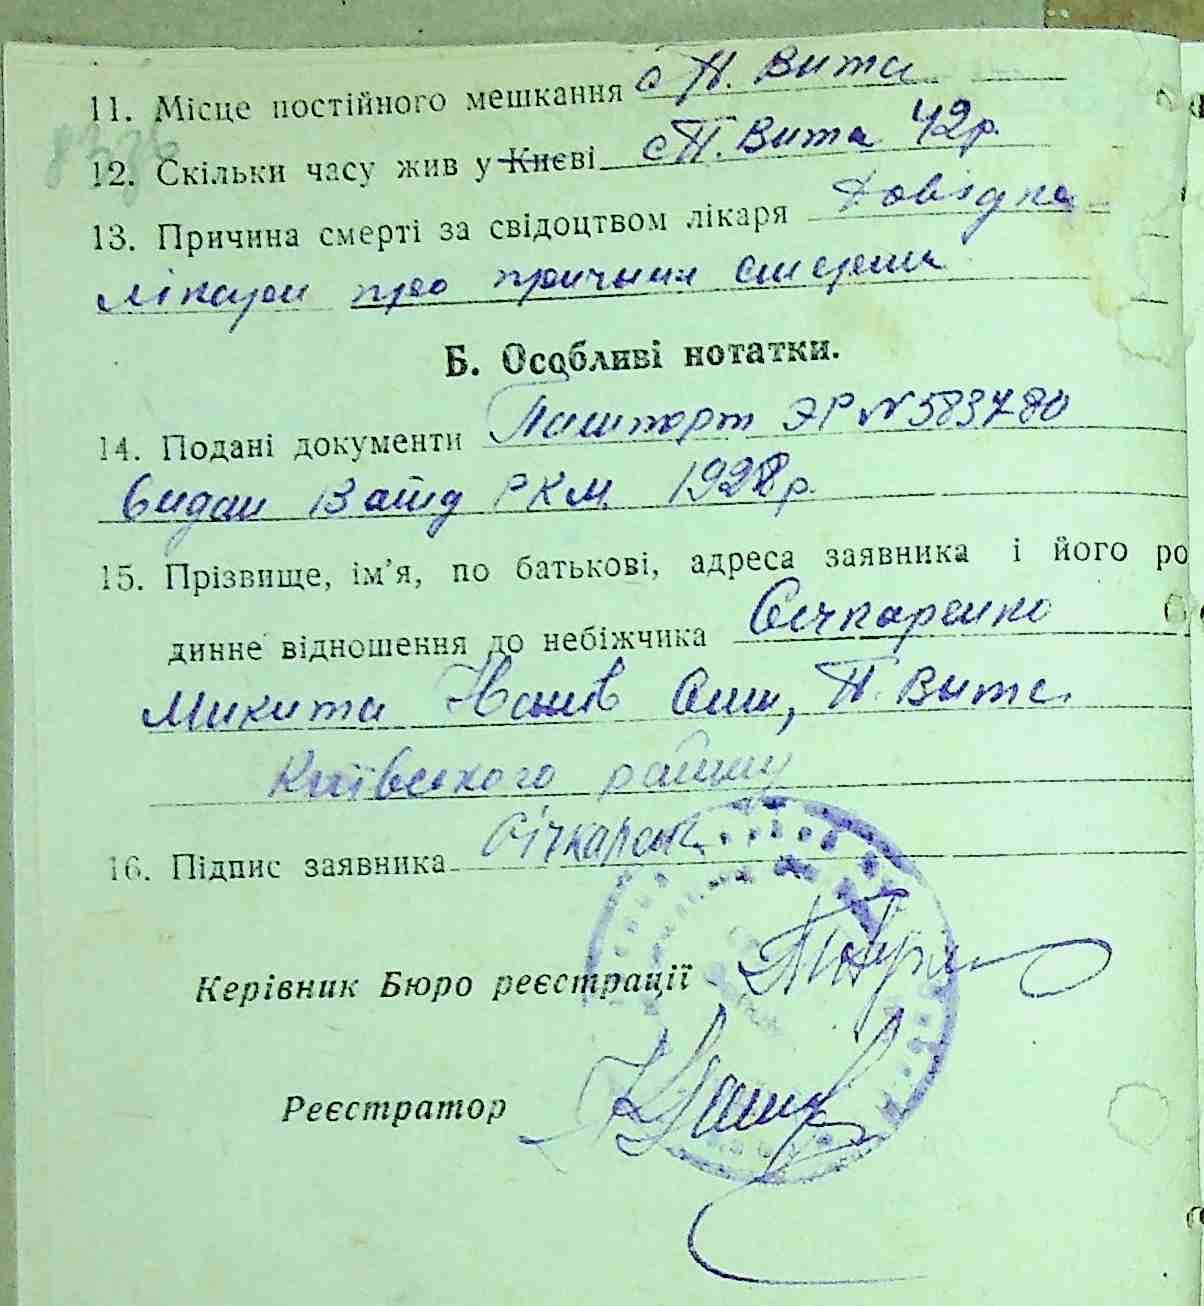 11. Місце постійного мешкання с П. Вита
12. Скільки часу жив у Києві с П. Вита 42 р.
13. Причина смерті за свідоцтвом лікаря Довідка
лікаря про причини смерти
Б. Особливі нотатки.
14. Подані документи Пашпорт ЭР № 583780
видан 13 РКМ 1938 р.
15. Прізвище, ім’я, по батькові, адреса заявника і його ро
динне відношення до небіжчика Січкаренко
Микита Іванів, П. Вита
Київського району
16. Підпис заявника Січкарен
Керівник Бюро реєстрації
Реєстратор